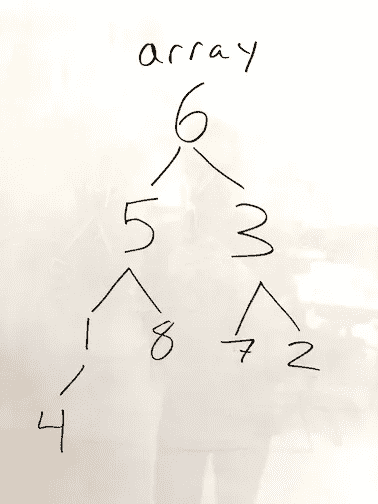 array
6
5 3
1 8 7 2
4